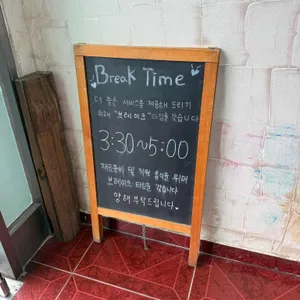 Break Time
더 좋은 서비스를 제공해 드리기
위해 "브레이크"타임을 갖습니다
3:30~5:00
재료준비 및 직원 휴식을 위해
브레이크 타임을 갖습니다
양해부탁드립니다.